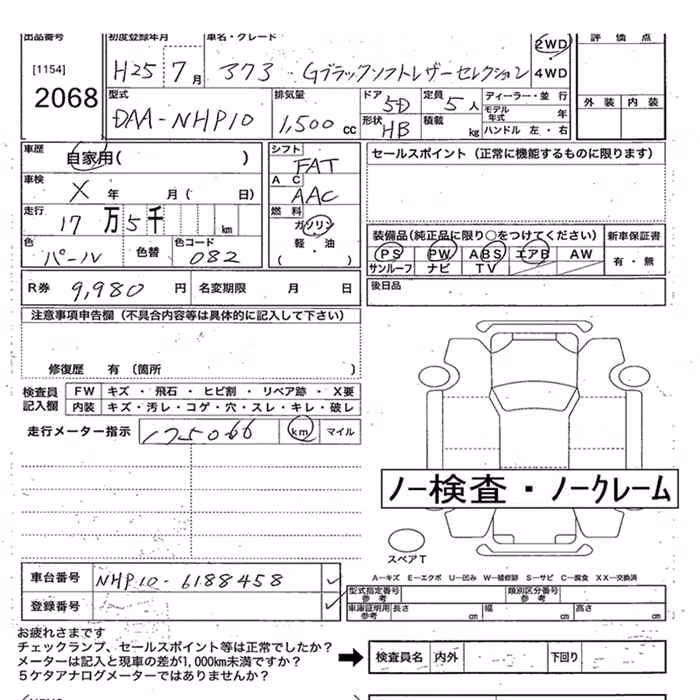 出品番号 初度登録年月 車名・グレード 2WD 評価点
[1154] H25 7月 373 ・Gブラックソフトレザーセレクション 4WD
2068 型式 排気量 ドア 5D 定員 5人 ディーラー・並行 外装 内装
DAA-NHP10 1,500cc 形状 HB 積載 kg モデル年式 年
ハンドル 左・右
車歴 自家用( ) シフト FAT セールスポイント（正常に機能するものに限ります）
車検 X 年 月( 日) AC AAC
走行 17万5千 km 燃料 ガソリン 装備品(純正品に限り○をつけてください) 新車保証書
色 パール 色替 色コード 082 軽・油 PS PW ABS エアB AW 有・無
( ) サンルーフ ナビ TV
R券 9,980円 名変期限 月 日 後日品
注意事項申告欄（不具合内容等は具体的に記入して下さい）
修復歴 有（箇所 ）
検査員記入欄 FW キズ・飛石・ヒビ割・リペア跡・X要
内装 キズ・汚レ・コゲ・穴・スレ・キレ・破レ
走行メーター指示 175066 km マイル
ノー検査・ノークレーム
スペアT
A―キズ E―エクボ U―凹み W―補修跡 S―サビ C―腐食 XX―交換済
車台番号 NHP10-6188458 型式指定番号参考 類別区分番号参考
登録番号 車庫証明用参考 長さ cm 幅 cm 高さ cm
お疲れさまです
チェックランプ、セールスポイント等は正常でしたか？
メーターは記入と現車の差が1,000km未満ですか？ 検査員名 内外 下回り
５ケタアナログメーターではありませんか？